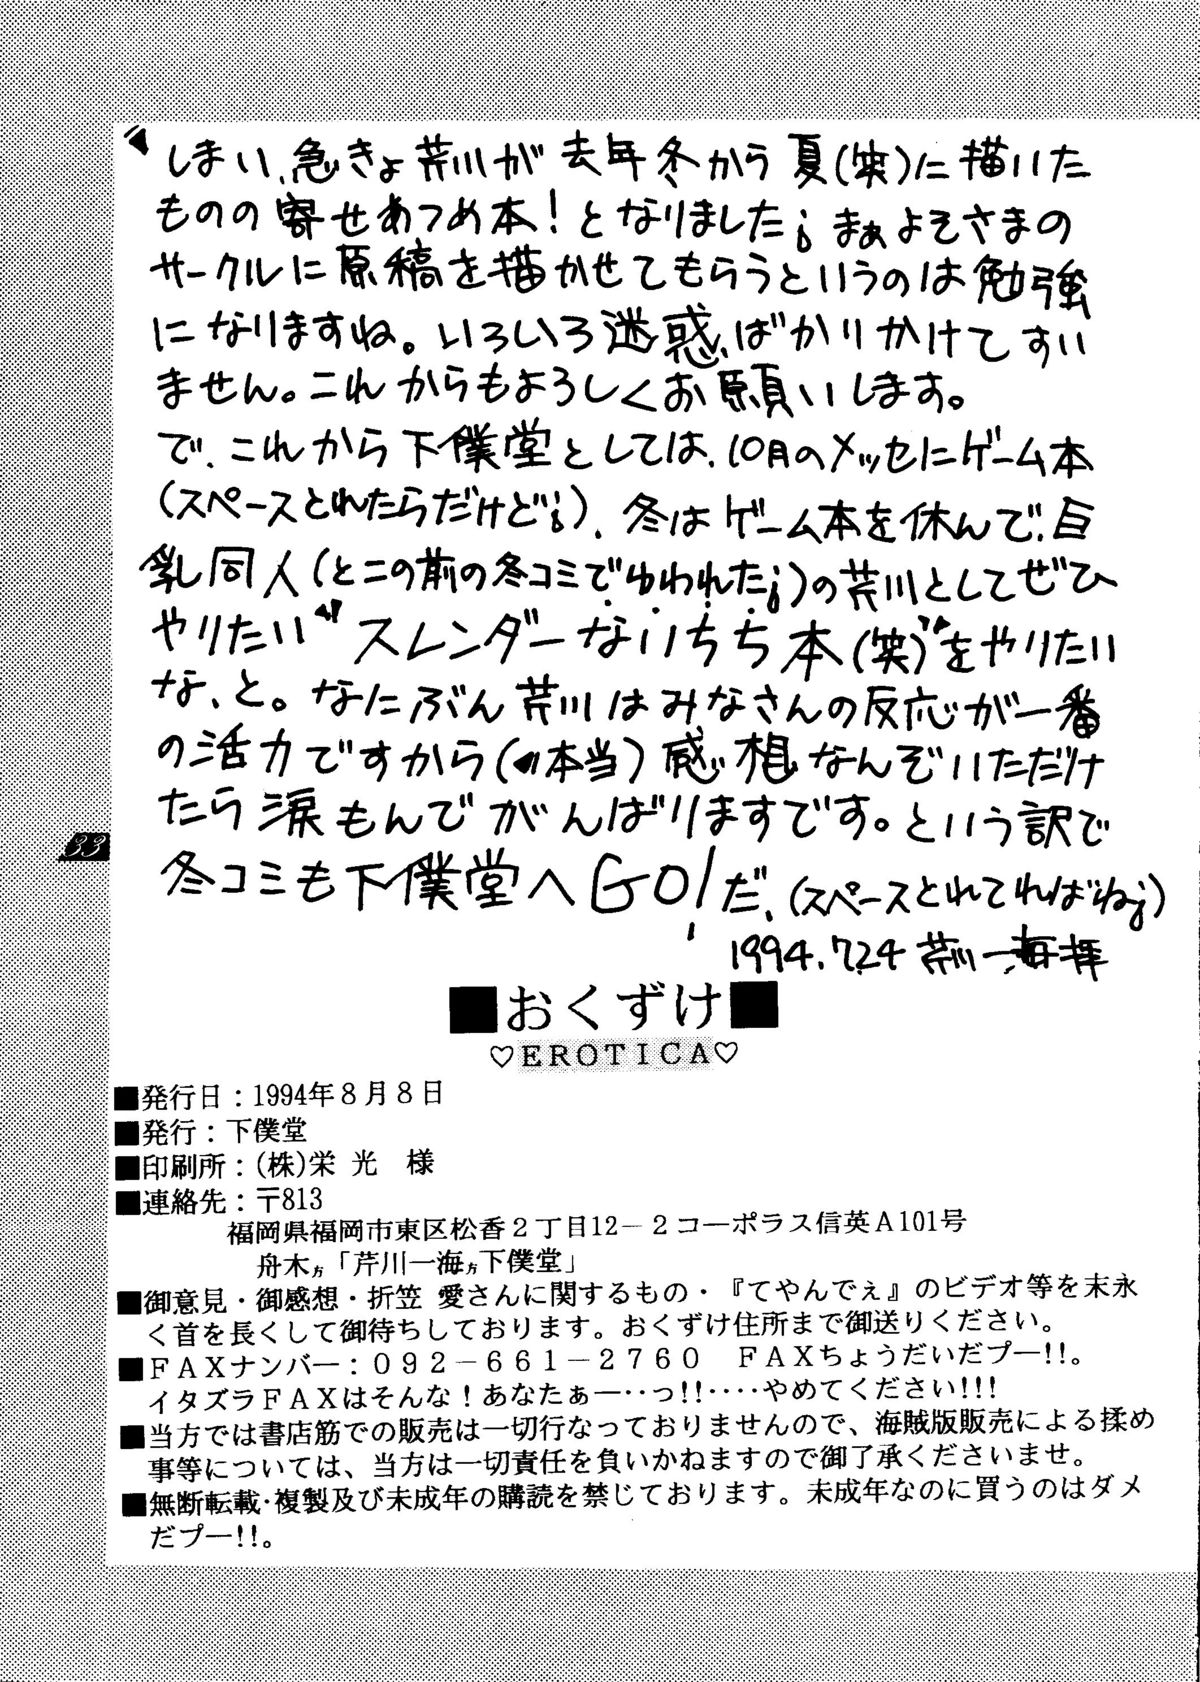 しまい、急きょ芹川が去年冬から夏(笑)に描いた
ものの寄せあつめ本!となりました¡まぁよそさまの
サークルに原稿を描かせてもらうというのは勉強
になりますね。いろいろ迷惑ばかりかけてすい
ません。これからもよろしくお願いします。
で、これから下僕堂としては、10月のメッセにゲーム本
(スペースとれたらだけど¡)、冬はゲーム本を休んで、巨
乳同人(とこの前の冬コミでゆわれた¡)の芹川としてぜひ
やりたい〝スレンダーないちち本(笑)〟をやりたい
な、と。なにぶん芹川はみなさんの反応が一番
の活力ですから(本当)感想なんぞいただけ
たら涙もんでがんばりますです。という訳で
冬コミも下僕堂へGO!だ、(スペースとれてればね¡)
1994.7.24 芹川一海拝
33
■おくずけ■
♡EROTICA♡
■発行日:1994年8月8日
■発行:下僕堂
■印刷所:(株)栄光 様
■連絡先:〒813
福岡県福岡市東区松香2丁目12-2コーポラス信英A101号
舟木方「芹川一海方下僕堂」
■御意見・御感想・折笠 愛さんに関するもの・『てやんでぇ』のビデオ等を末永
く首を長くして御待ちしております。おくずけ住所まで御送りください。
■FAXナンバー:092-661-2760 FAXちょうだいだプー!!。
イタズラFAXはそんな!あなたぁー‥っ!!‥‥やめてください!!!
■当方では書店筋での販売は一切行なっておりませんので、海賊版販売による揉め
事等については、当方は一切責任を負いかねますので御了承くださいませ。
■無断転載・複製及び未成年の購読を禁じております。未成年なのに買うのはダメ
だプー!!。